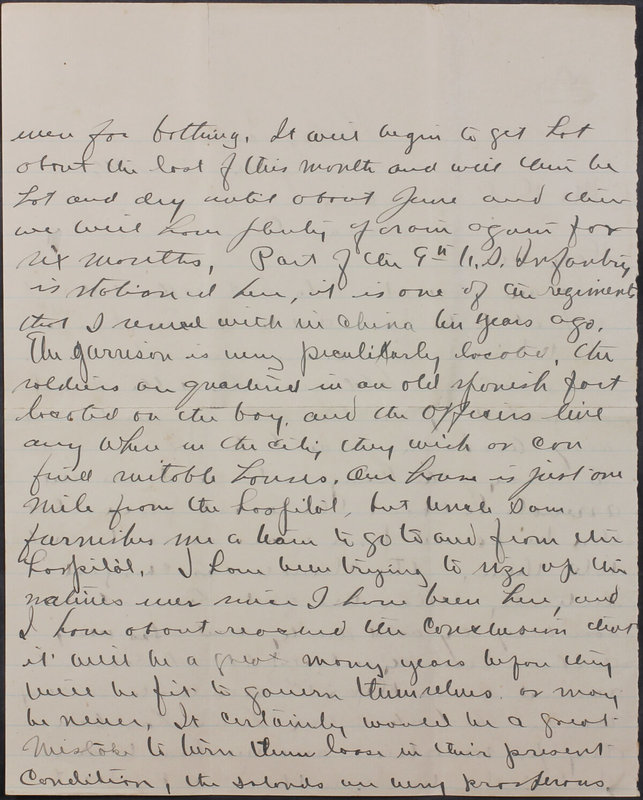 even for bathing. It will begin to get hot
about the last of this month and will then be
hot and dry until about June and then
we will have plenty of rain again for
six months, Part of the 9th U.S. Infantry
is stationed here, it is one of the regiments
that I served with in China ten years ago.
The garrison is very peculiarly located, the
soldiers are quartered in an old spanish fort
located on the bay, and the officers live
any where in the city they wish or can
find suitable houses. Our house is just one
mile from the hospital, but Uncle Sam
furnishes me a team to go to and from the
hospital. I have been trying to size up the
natives ever since I have been here, and
I have about reached the conclusion that
it will be a great many years before they
will be fit to govern themselves or may
be never, It certainly would be a great
mistake to turn them loose in their present
condition, the islands are very prosperous.